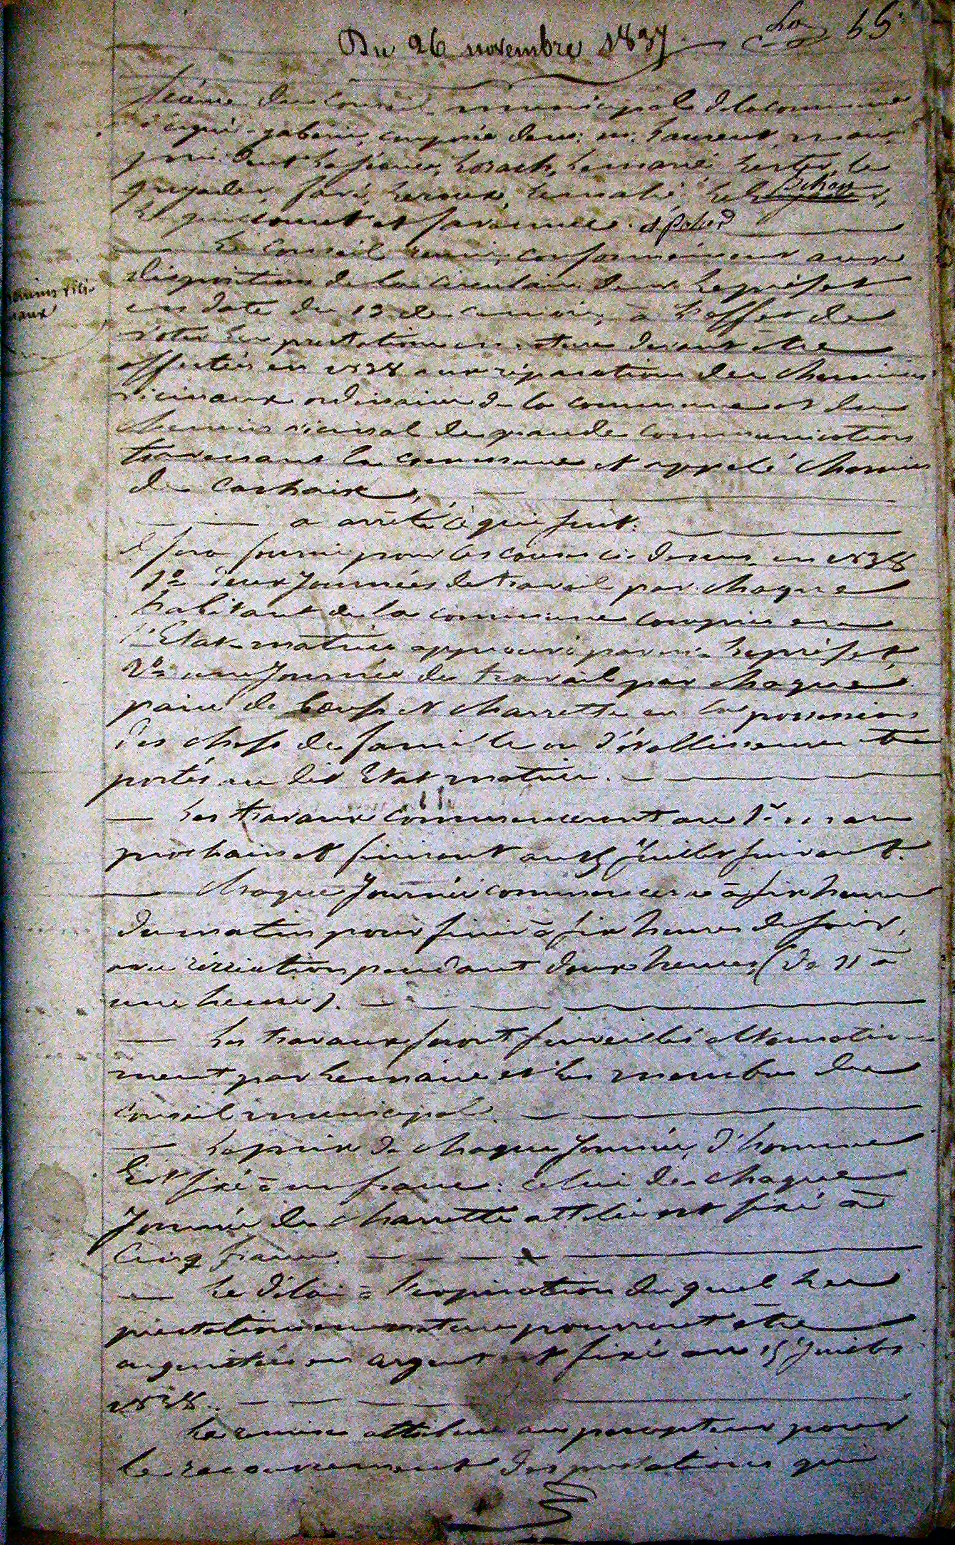 65
Du 26 novembre 1837
Séance du Conseil municipal de la commune
d'Ergué-gabéric, composée de MM. Laurent, maire,
président
Pétron
et
Le Conseil réuni, conformément aux
dispositions de la circulaire de mr le préfet
en date du 13 de ce mois, à l'effet de
voter les prestations en nature devant être
affectées en 1838 aux réparations des chemins
vicinaux ordinaires de la commune et du
chemin vicinal de grande communication
traversant la commune et appelé chemin
de Carhaix,
Chemins vici-
naux
a arrêté ce qui suit:
Il sera fourni pour les causes ci-dessus en 1838
1º deux journées de travail par chaque
habitant de la commune compris en
l'Etat-matrice approuvé par mr le préfet,
2º une journée de travail par chaque
paire de boeufs et charrette en la possession
des chefs de famille ou d'établissements
portés au dit Etat matrice.
Les travaux commenceront au 1er
prochain et finiront au 15 juillet suivant.
Chaque journée commencera à six heures
du matin pour finir à six heures du soir,
avec récréation pendant deux heures, (de 11 à
une heure).
Les travaux seront surveillés alternative-
ment par le maire et les membres du
Conseil municipal.
Le prix de chaque journée d'homme
Est fixé à un franc. Celui de chaque
journée de charrette attelée est fixé à
cinq francs.
Le délai à l'expiration duquel les
prestations en nature pourront être
acquittées en argent est fixé au 15 juillet
1838.
La remise attribuée au percepteur pour
le recouvrement des prestations qui